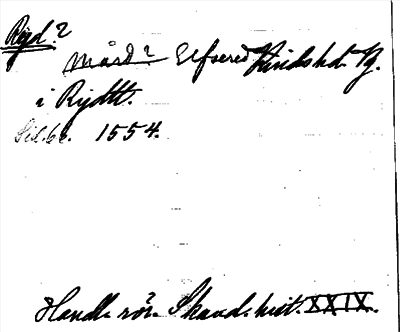 Ryd?
Mård? Elfsered Kindshd. Ög.
i Rydtt.
1554.
Handl. rör. Skand. hist. XXIX.